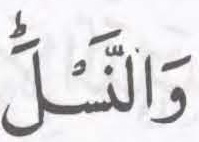 وَالنَّسْلَؕ